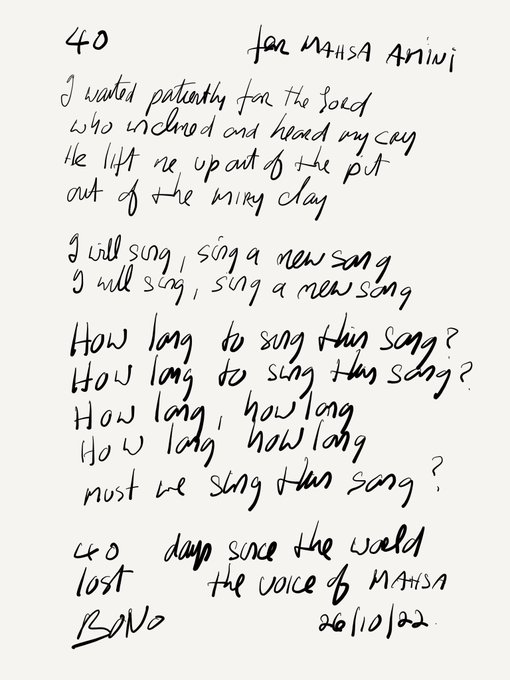 40 for MAHSA AMINI
I waited patiently for the Lord
who inclined and heard my cry
He lift me up out of the pit
out of the miry clay
I will sing, sing a new song
I will sing, sing a new song
How long to sing this song?
How long to sing this song?
How long, how long
How long how long
must we sing this song?
40 days since the world
lost the voice of MAHSA
BONO 26/10/22.